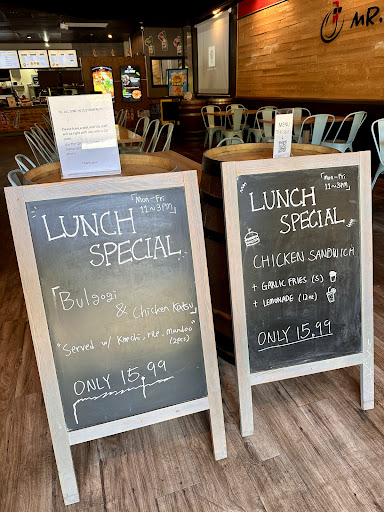 MR.
MENU
Mon-Fri
11~3PM
LUNCH
SPECIAL
Bulgogi
& Chicken Katsu
*Served w/ Kimchi, rice, mandoo
(2pcs)
ONLY 15.99
Mon-Fri
11~3PM
LUNCH
SPECIAL
CHICKEN SANDWICH
+ GARLIC FRIES (S)
+ LEMONADE (12oz)
ONLY 15.99